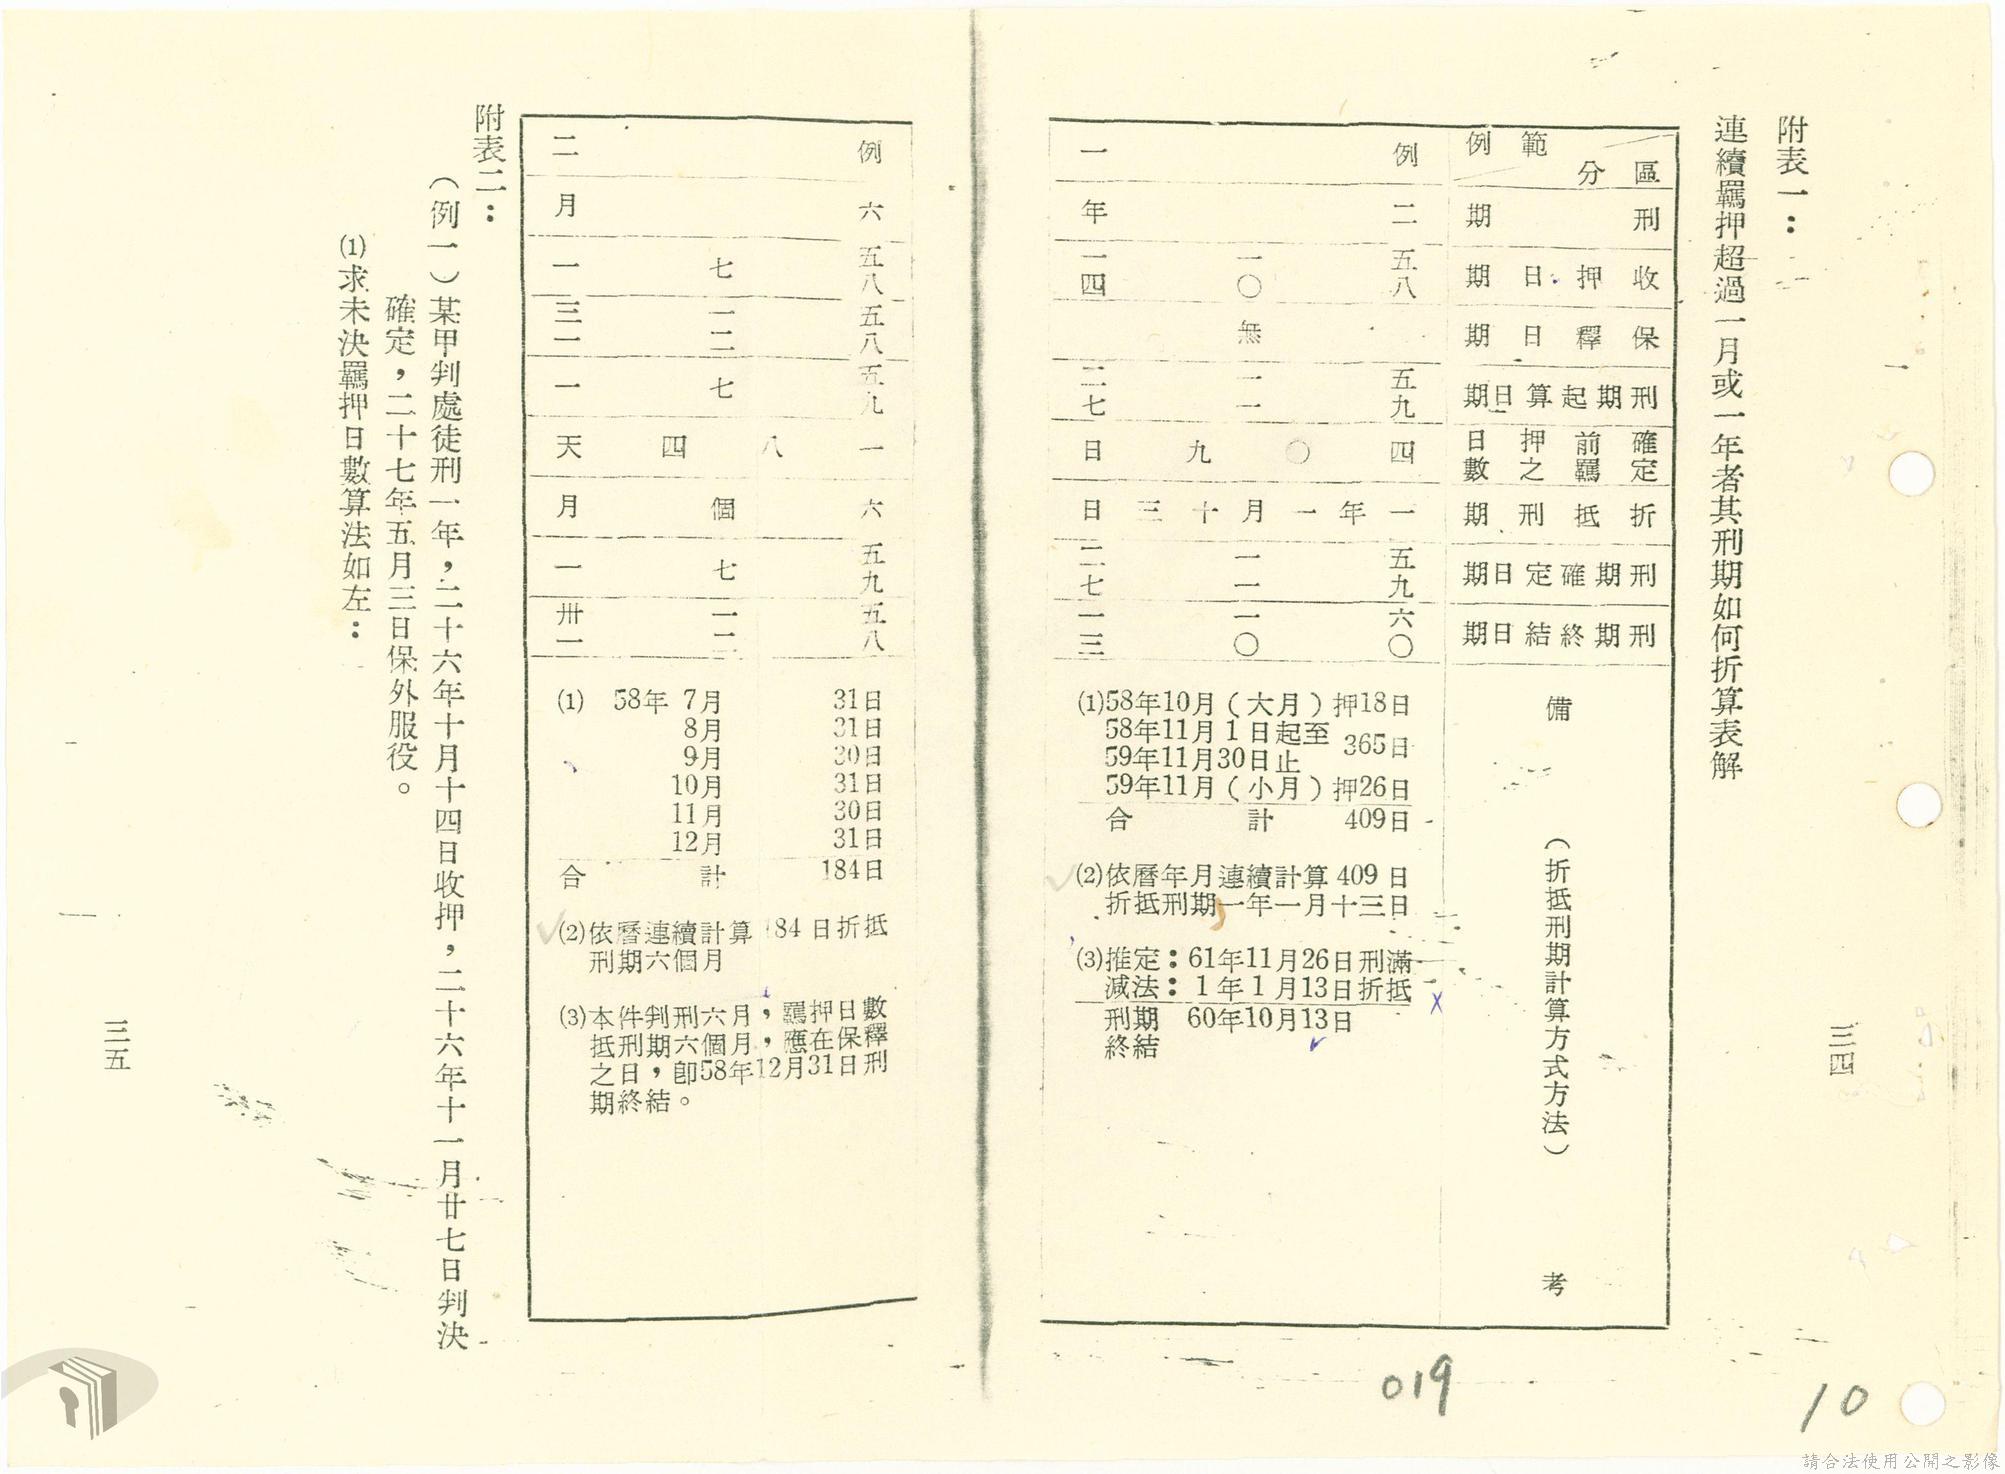 附表一：
連續羈押超過一月或一年者其刑期如何折算表解
三四
區分
範例
刑期
收押日期
保釋日期
刑期起算日期
確定前羈押之日數
折抵刑期
刑期確定日期
刑期終結日期
備考
（折抵刑期計算方式方法）
例一
二年
五八 一〇 一四
無
五九 一一 二七
四〇九日
一年一月十三日
五九 一一 二七
六〇 一〇 一三
(1)58年10月（大月）押18日
58年11月1日起至
59年11月30日止 365日
59年11月（小月）押26日
合計 409日
(2)依曆年月連續計算409日
折抵刑期一年一月十三日
(3)推定：61年11月26日刑滿
減法：1年1月13日折抵
刑期 60年10月13日
終結
例二
六月
五八 七 一
五八 一二 三一
五九 七 一
一八四天
六個月
五九 七 一
五八 一二 卅一
(1) 58年 7月 31日
8月 31日
9月 30日
10月 31日
11月 30日
12月 31日
合計 184日
(2)依曆連續計算184日折抵
刑期六個月
(3)本件判刑六月，羈押日數
抵刑期六個月，應在保釋
之日，卽58年12月31日刑
期終結。
附表二：
（例一）某甲判處徒刑一年，二十六年十月十四日收押，二十六年十一月廿七日判決
確定，二十七年五月三日保外服役。
(1)求未決羈押日數算法如左：
三五
019
10
請合法使用公開之影像